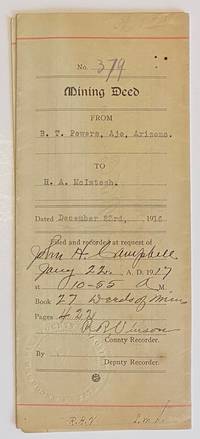 No. 379
Mining Deed
FROM
B. T. Powers, Ajo, Arizona.
TO
H. A. McIntosh.
Dated December 23rd, 1916
Filed and recorded at request of
John H. Campbell
Jany 22 A. D. 1917
at 10-55 A M.
Book 27 Deeds of Mines
Pages 422
County Recorder.
By
Deputy Recorder.